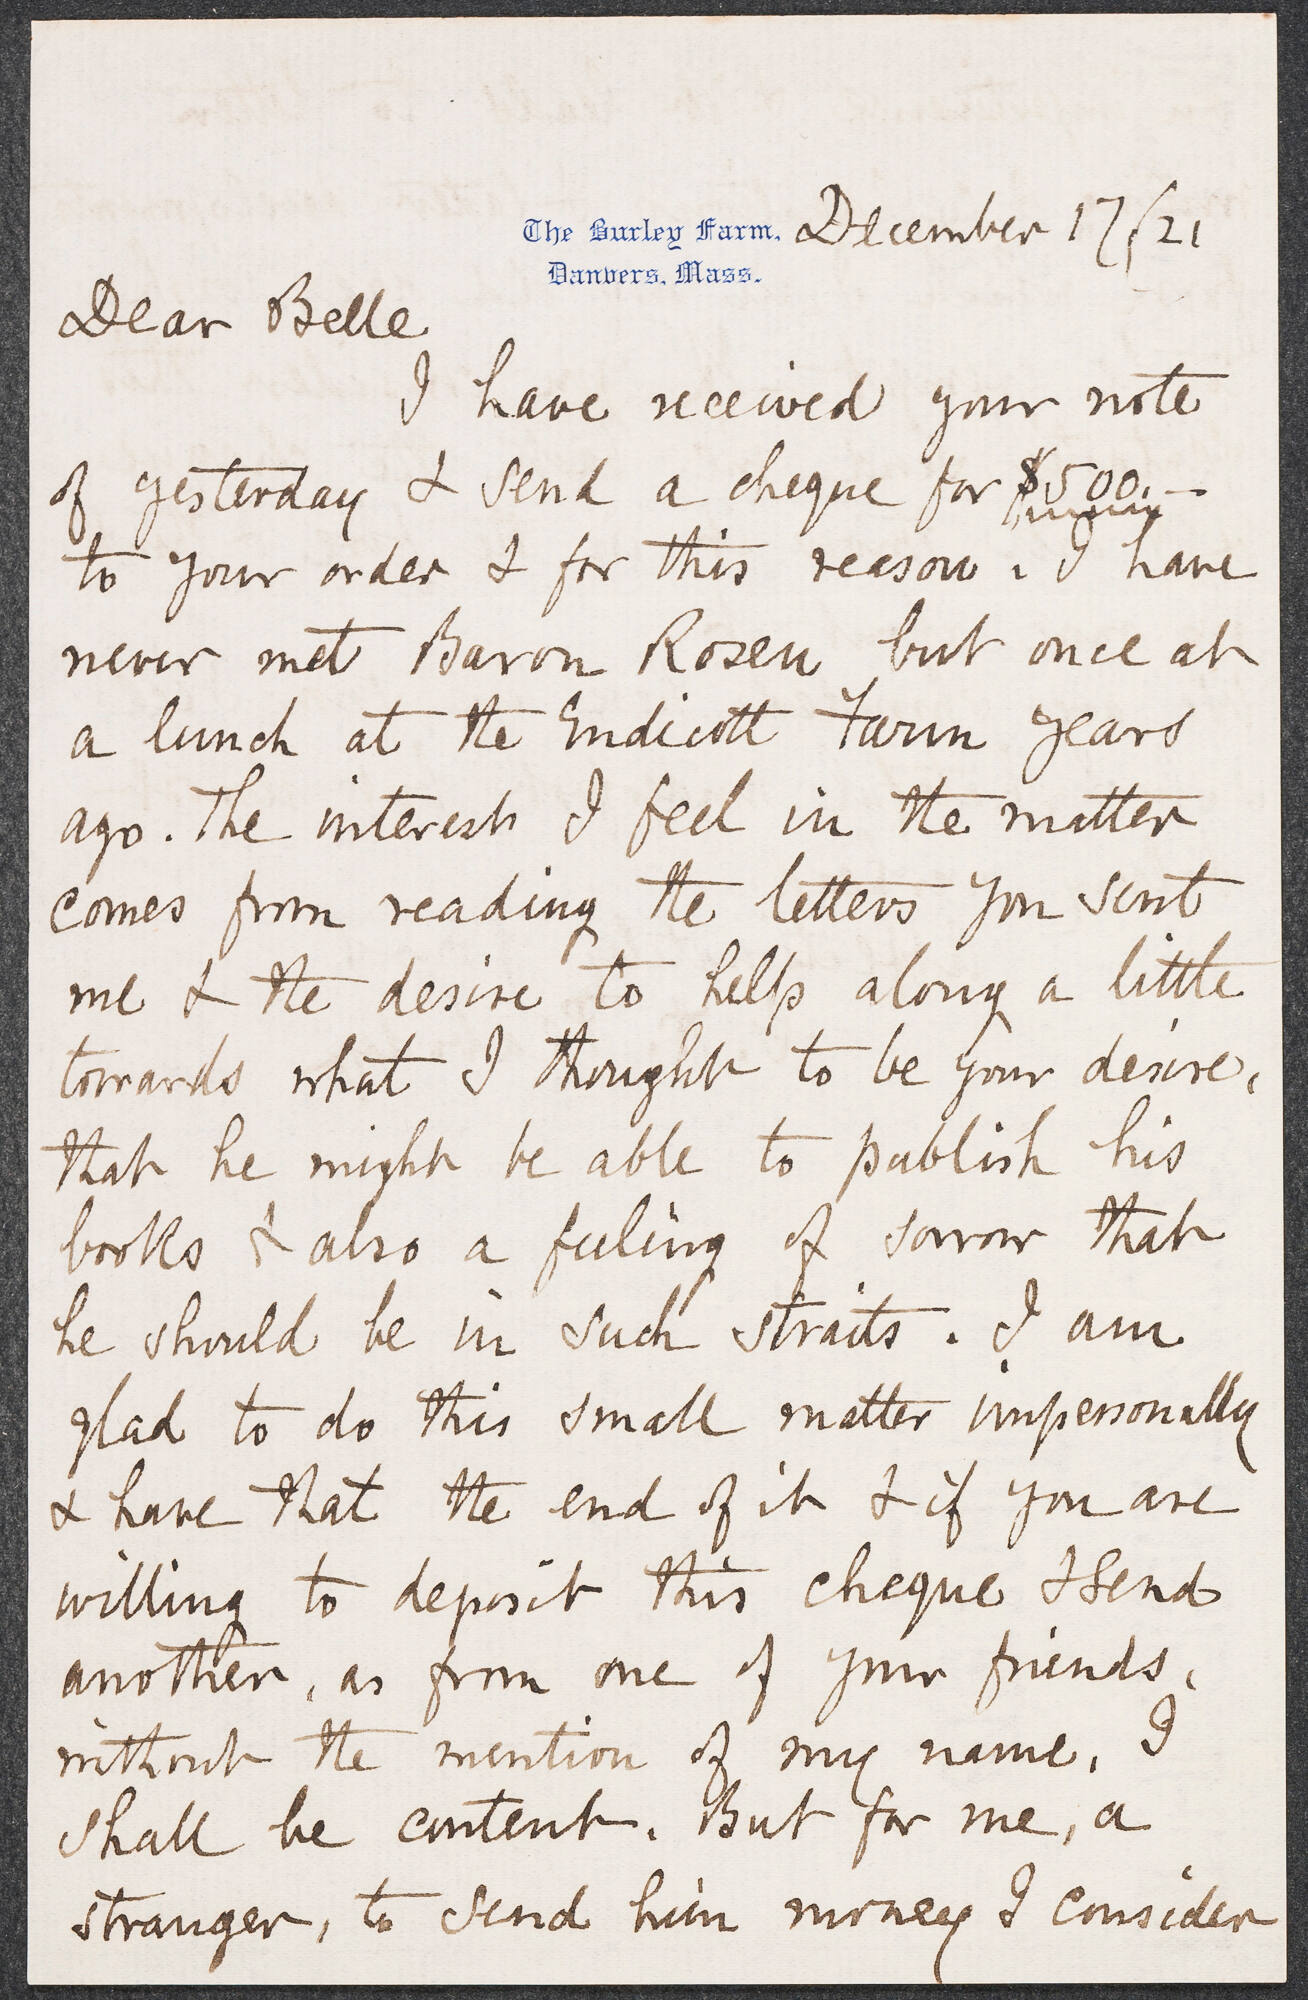 The Burley Farm, December 17/21
Danvers, Mass.
Dear Belle
I have received your note
of yesterday & send a cheque for $500.—
to your order & for this reason. I have
never met Baron Rosen but once at
a lunch at the Endicott Farm years
ago. The interest I feel in the matter
comes from reading the letters you sent
me & the desire to help along a little
towards what I thought to be your desire,
that he might be able to publish his
books & also a feeling of sorrow that
he should be in such straits. I am
glad to do this small matter impersonally
& have that the end of it & if you are
willing to deposit this cheque & send
another, as from one of your friends,
without the mention of my name, I
shall be content. But for me, a
stranger, to send him money I consider